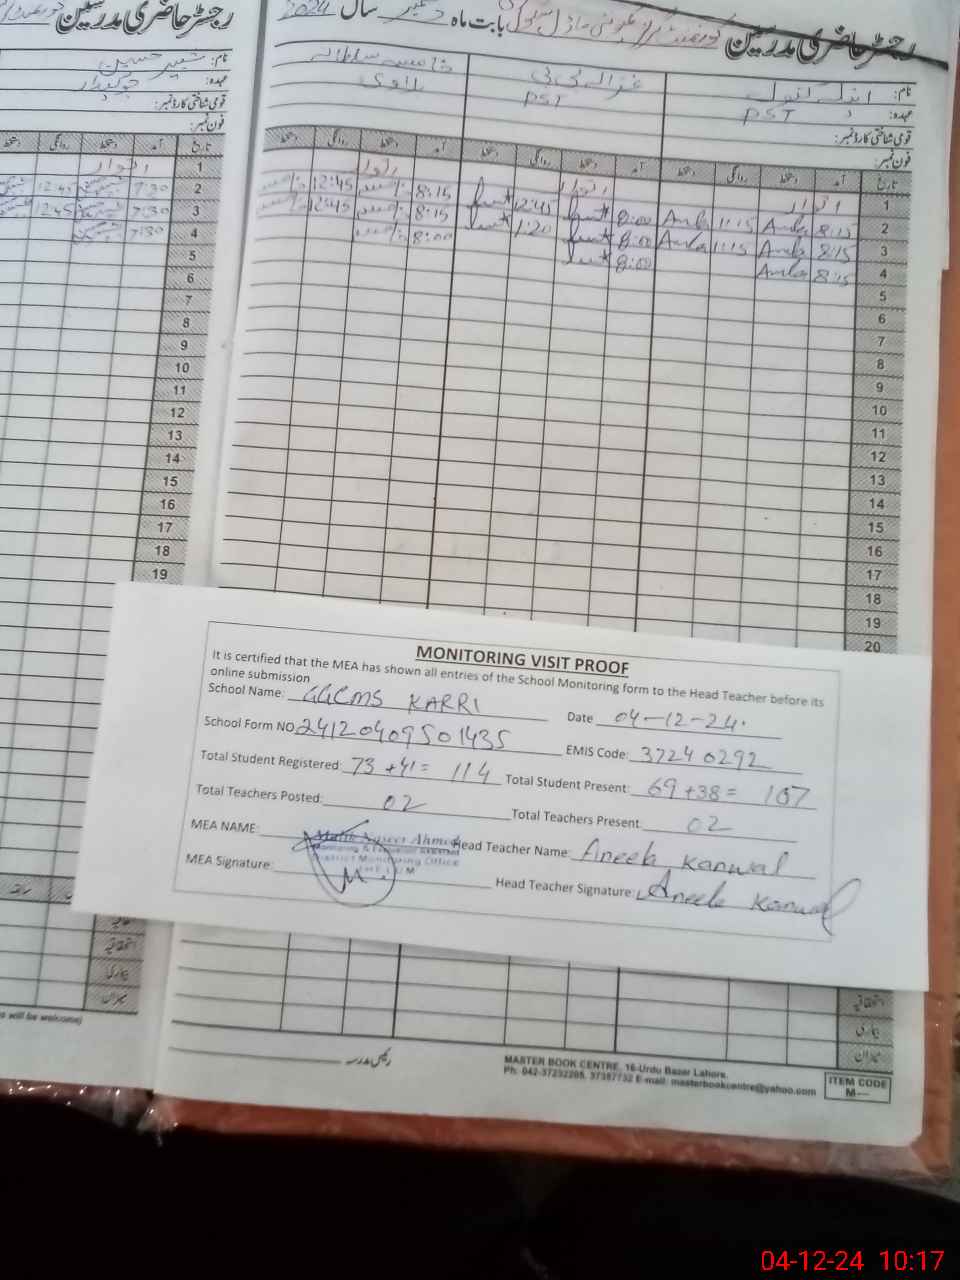 رجسٹر حاضری مدرسین
بابت ماہ دسمبر سال 2024
نام: شبیر حسین
عہدہ: چوکیدار
قومی شناختی کارڈ نمبر:
فون نمبر:
تاریخ آمد دستخط روانگی دستخط
1 اتوار
2 7:30 12:45
3 7:30 12:45
4 7:30
5
6
7
8
9
10
11
12
13
14
15
16
17
18
19
رجسٹر حاضری مدرسین
نام: انیلہ کنول غزالہ بی بی سلطانہ
عہدہ: PST PST
قومی شناختی کارڈ نمبر:
فون نمبر:
تاریخ آمد دستخط روانگی دستخط آمد دستخط روانگی دستخط آمد دستخط روانگی دستخط
1 اتوار اتوار اتوار
2 8:15 1:15 8:00 12:45 8:15 12:45
3 8:15 1:15 8:00 1:20 8:15 12:45
4 8:15 8:00 8:00
5
6
7
8
9
10
11
12
13
14
15
16
17
18
19
20
MONITORING VISIT PROOF
It is certified that the MEA has shown all entries of the School Monitoring form to the Head Teacher before its
online submission
School Name: GGCMS KARRI Date 04-12-24.
School Form NO. 24120409501435 EMIS Code: 37240292
Total Student Registered: 73+41= 114 Total Student Present: 69+38= 107
Total Teachers Posted: 02 Total Teachers Present: 02
MEA NAME: Malik Naseer Ahmed Head Teacher Name: Aneela Kanwal
Monitoring & Evaluation Assistant
District Monitoring Office
JHELUM
MEA Signature: Head Teacher Signature: Aneela Kanwal
اتفاقیہ
بیماری
میزان
s will be welcome)
اتفاقیہ
بیماری
میزان
رئیس مدرسہ
MASTER BOOK CENTRE, 16-Urdu Bazar Lahore.
Ph: 042-37232205, 37357732 E-mail: masterbookcentre@yahoo.com
ITEM CODE
M---
04-12-24 10:17